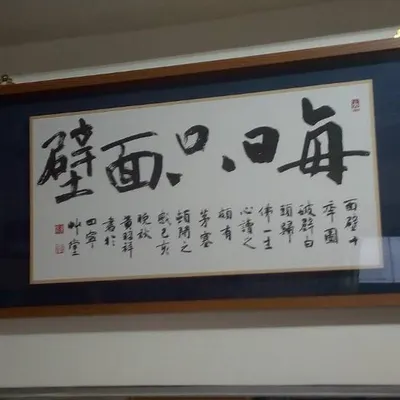 每日只面壁
面壁十
年圖
破壁白
頭歸
佛一生
心讀之
頗有
茅塞
頓開之
感己亥
晚秋
黃昭祥
書於
四寧
艸堂